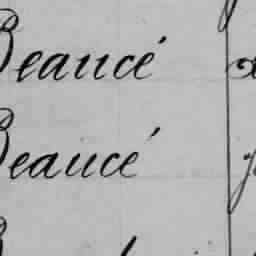 Beaucé
Beaucé